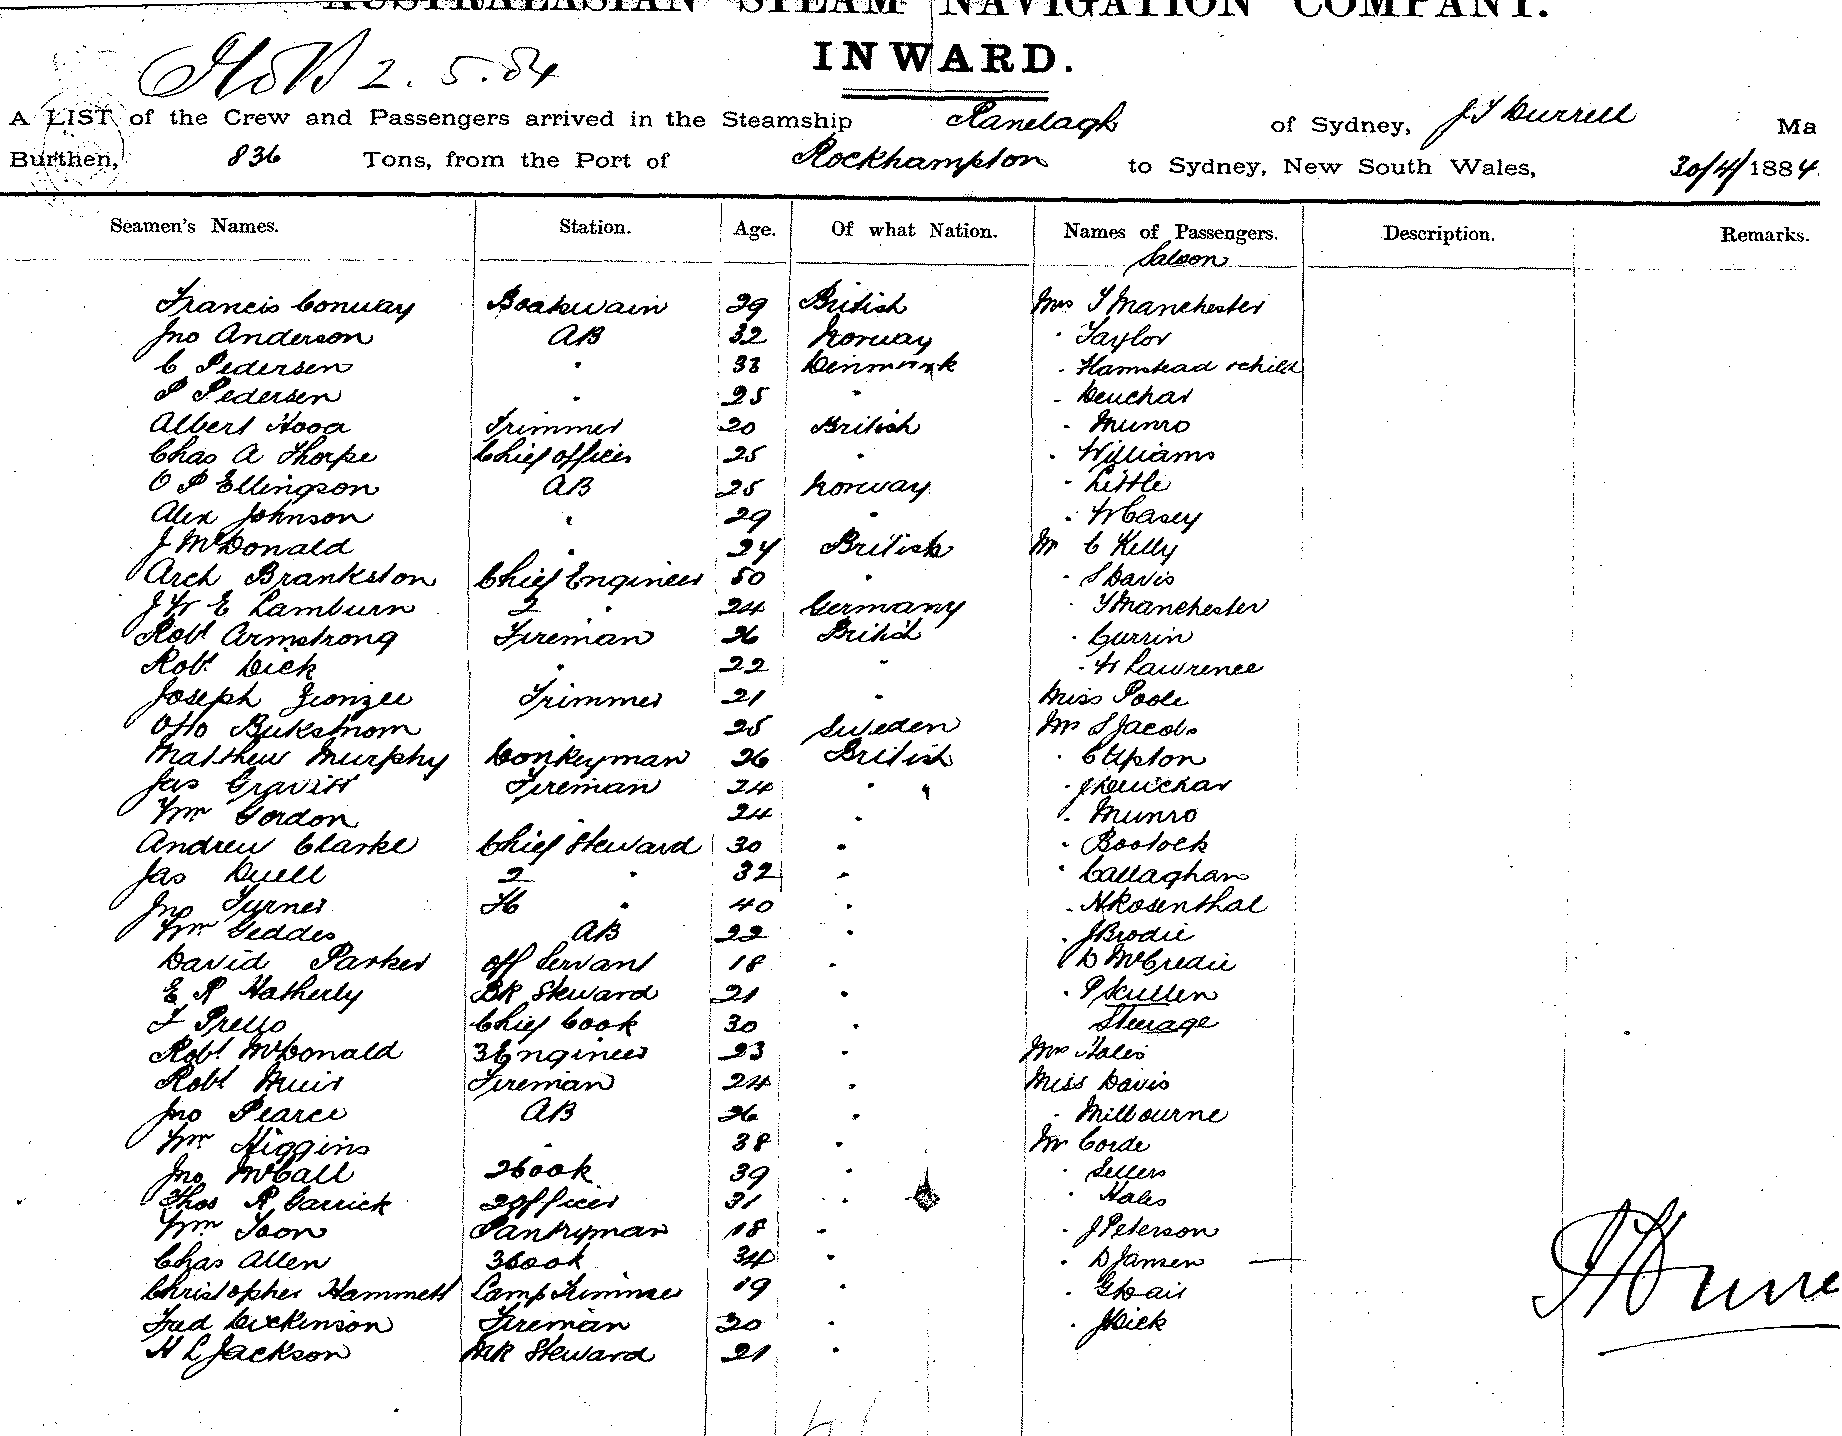 AUSTRALASIAN STEAM NAVIGATION COMPANY.
INWARD.
2.5.84
A LIST of the Crew and Passengers arrived in the Steamship Ranelagh of Sydney, J S Durrell Ma
Burthen, 836 Tons, from the Port of Rockhampton to Sydney, New South Wales, 30/4/1884
Seamen's Names. Station. Age. Of what Nation. Names of Passengers. Description. Remarks.
Saloon
Francis Conway Boatswain 29 British Mrs T Manchester
Jno Anderson AB 32 Norway " Taylor
C Pedersen " 33 Denmark " Hamstead & child
P Pedersen " 25 " " Deuchar
Albert Hood Trimmer 20 British " Munro
Chas A Thorpe Chief officer 25 " " Williams
O P Ellingson AB 25 Norway " Little
Alex Johnson " 29 " " W Casey
J McDonald " 24 British Mr C Kelly
Arch Brankston Chief Engineer 50 " " S Davis
J W E Lamburn 2 " 24 Germany " T Manchester
Robt Armstrong Fireman 26 British " Currin
Robt Dick " 22 " " W Lawrence
Joseph Trimmer 21 " Miss Poole
Otto " 25 Sweden Mr S Jacobs
Matthew Murphy Donkeyman 26 British " C Upton
Jas Gravitt Fireman 24 " " J Deuchar
Wm Gordon " 24 " " Munro
Andrew Clarke Chief Steward 30 " " Bostock
Jas Duell 2 " 32 " " Callaghan
Jno Turner " 40 " " H Rosenthal
Wm Geddes AB 22 " " J Brodie
David Parker off Servant 18 " " D McCredie
E R Hatherly BK Steward 21 " " P Skullen
F Chief Cook 30 " Steerage
Robt McDonald 3 Engineer 23 " Mrs Hales
Robt Muir Fireman 24 " Miss Davis
Jno Pearce AB 26 " " Milbourne
Wm Higgins " 38 " Mr Corde
Jno McCall 2 Cook 39 " " Sellers
Thos R Carrick 2 officer 31 " " Hales
Wm Toon Pantryman 18 " " J Peterson
Chas Allen 3 Cook 34 " " D Jansen
Christopher Hammett Lamp Trimmer 19 " " G Dair
Fred Dickinson Fireman 20 " " J Dick
H L Jackson Steward 21 "